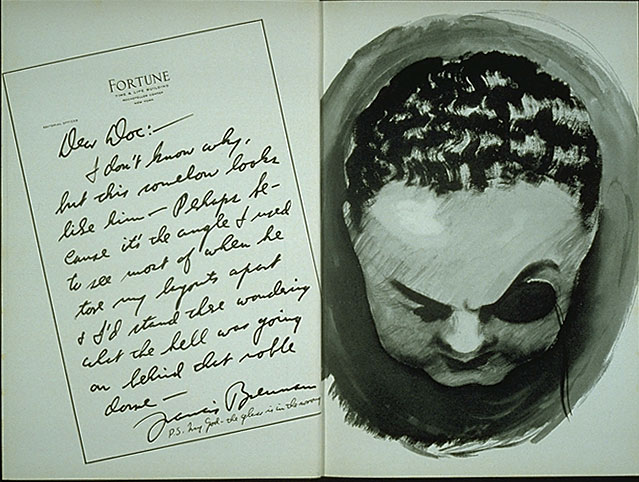 FORTUNE
TIME & LIFE BUILDING
ROCKEFELLER CENTER
NEW YORK
EDITORIAL OFFICES
Dear Doc:—
I don't know why,
but this somehow looks
like him — Perhaps be-
cause it's the angle I used
to see most of when he
tore my layouts apart
& I'd stand there wondering
what the hell was going
on behind that noble
dome —
Francis Brennan
P.S. My God - the glass is in the wrong